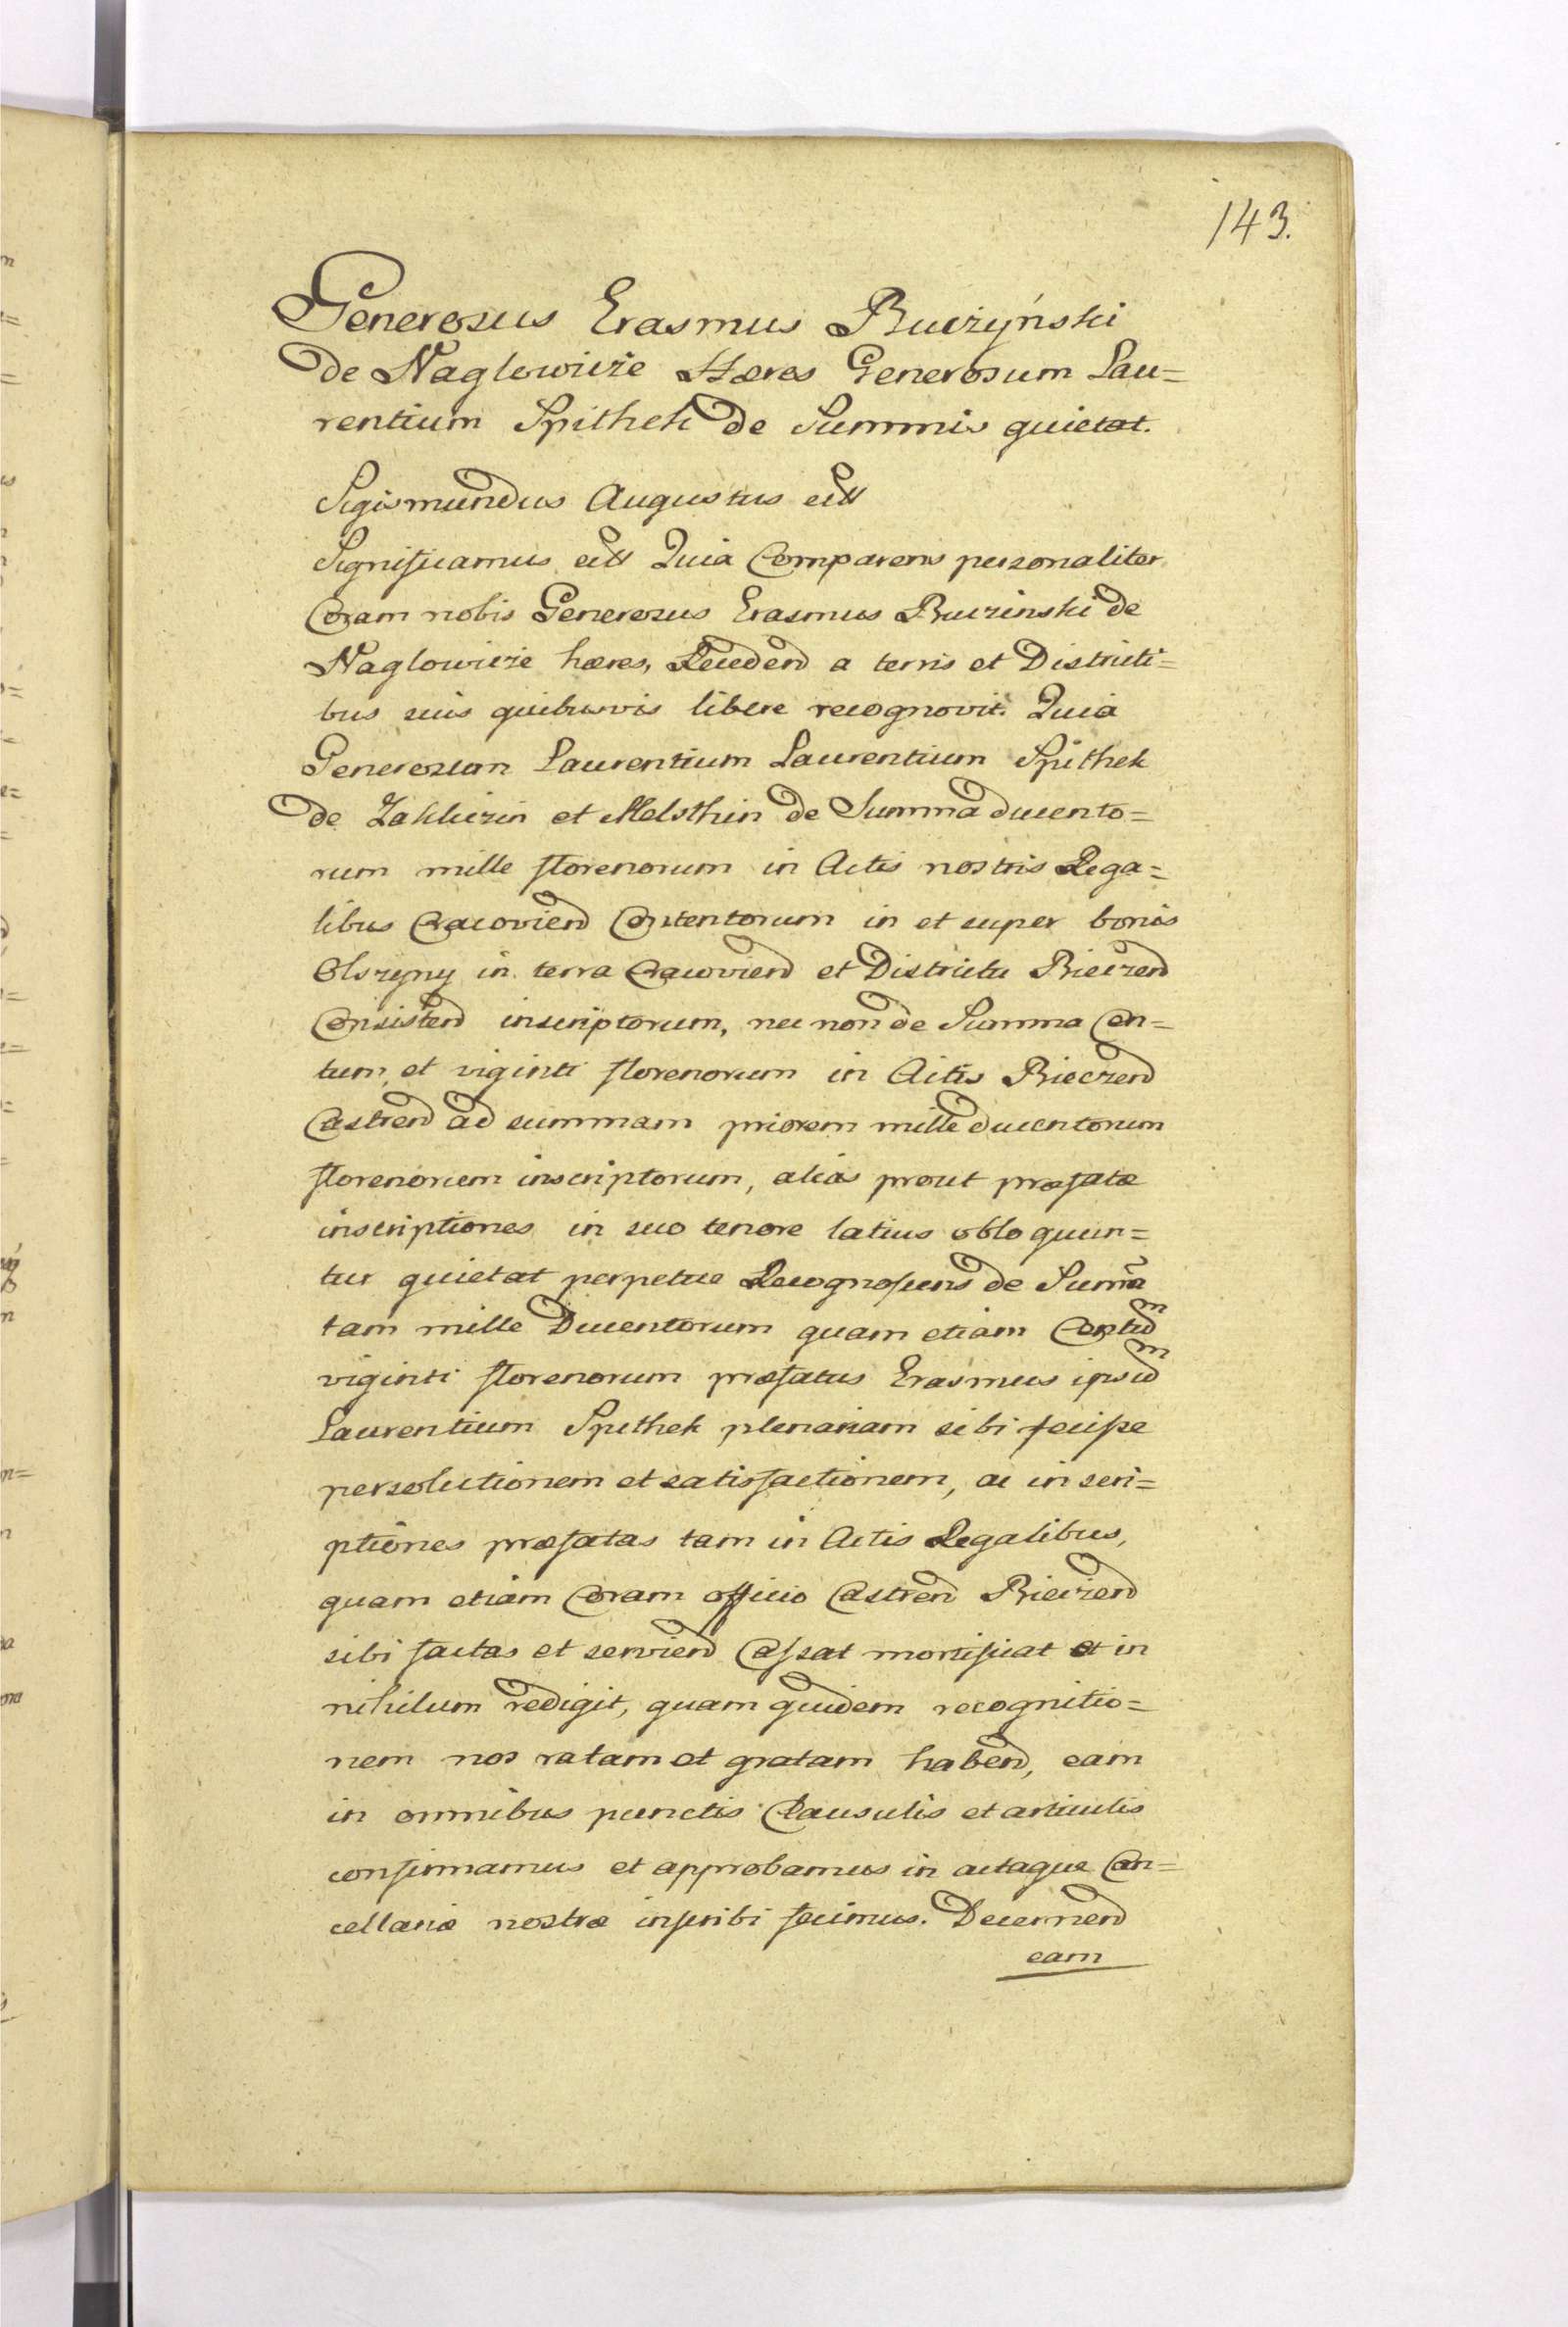 143.
Generosus Erasmus Buczyński
de Naglowicze Hæres Generosum Lau=
rentium Spithek de Summis quietat.
Sigismundus Augustus ett
Significamus ett Quia Comparens personaliter
Coram nobis Generosus Erasmus Buczinski de
Naglowicze hæres, Recedend a terris et Districti=
bus suis quibusvis libere recognovit. Quia
Generosum Laurentium Laurentium Spithek
de Zakliczin et Melsthin de Summa ducento=
rum mille florenorum in Actis nostris Rega=
libus Cracoviend Contentorum in et super bonis
Olszyny in terra Cracoviend et Districtu Bieczend
Consistend inscriptorum, nec non de Summa Cen=
tum et viginti florenorum in Actis Bieczend
Castrend ad summam priorem mille ducentorum
florenorum inscriptorum, alias prout præfatæ
inscriptiones in suo tenore latius obloquun=
tur quietat perpetue Recognoscens de Sum̃a
tam mille Ducentorum quam etiam Centū
viginti florenorum præfatus Erasmus ipsū
Laurentium Spithek plenariam sibi fecisse
persolutionem et satisfactionem, ac in scri=
ptiones præfatas tam in Actis Regalibus,
quam etiam Coram officio Castrend Bieczend
sibi factas et serviend Cassat mortificat et in
nihilum redigit, quam quidem recognitio=
nem nos ratam et gratam habend, eam
in omnibus punctis Clausulis et articulis
confirmamus et approbamus in actaque Can=
cellariæ nostræ inscribi fecimus. Decernend
eam